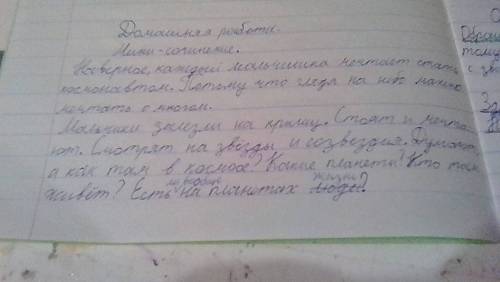 Домашняя работа.
Мини-сочинение.
Наверное, каждый мальчишка мечтает стать
космонавтом. Потому что глядя на небо можно
мечтать о многом.
Мальчики залезли на крышу. Стоят и мечта-
ют. Смотрят на звёзды и созвездия. Думают,
а как там в космосе? Какие планеты? Кто там
живёт? Есть ли вообще на планетах люди жизнь?